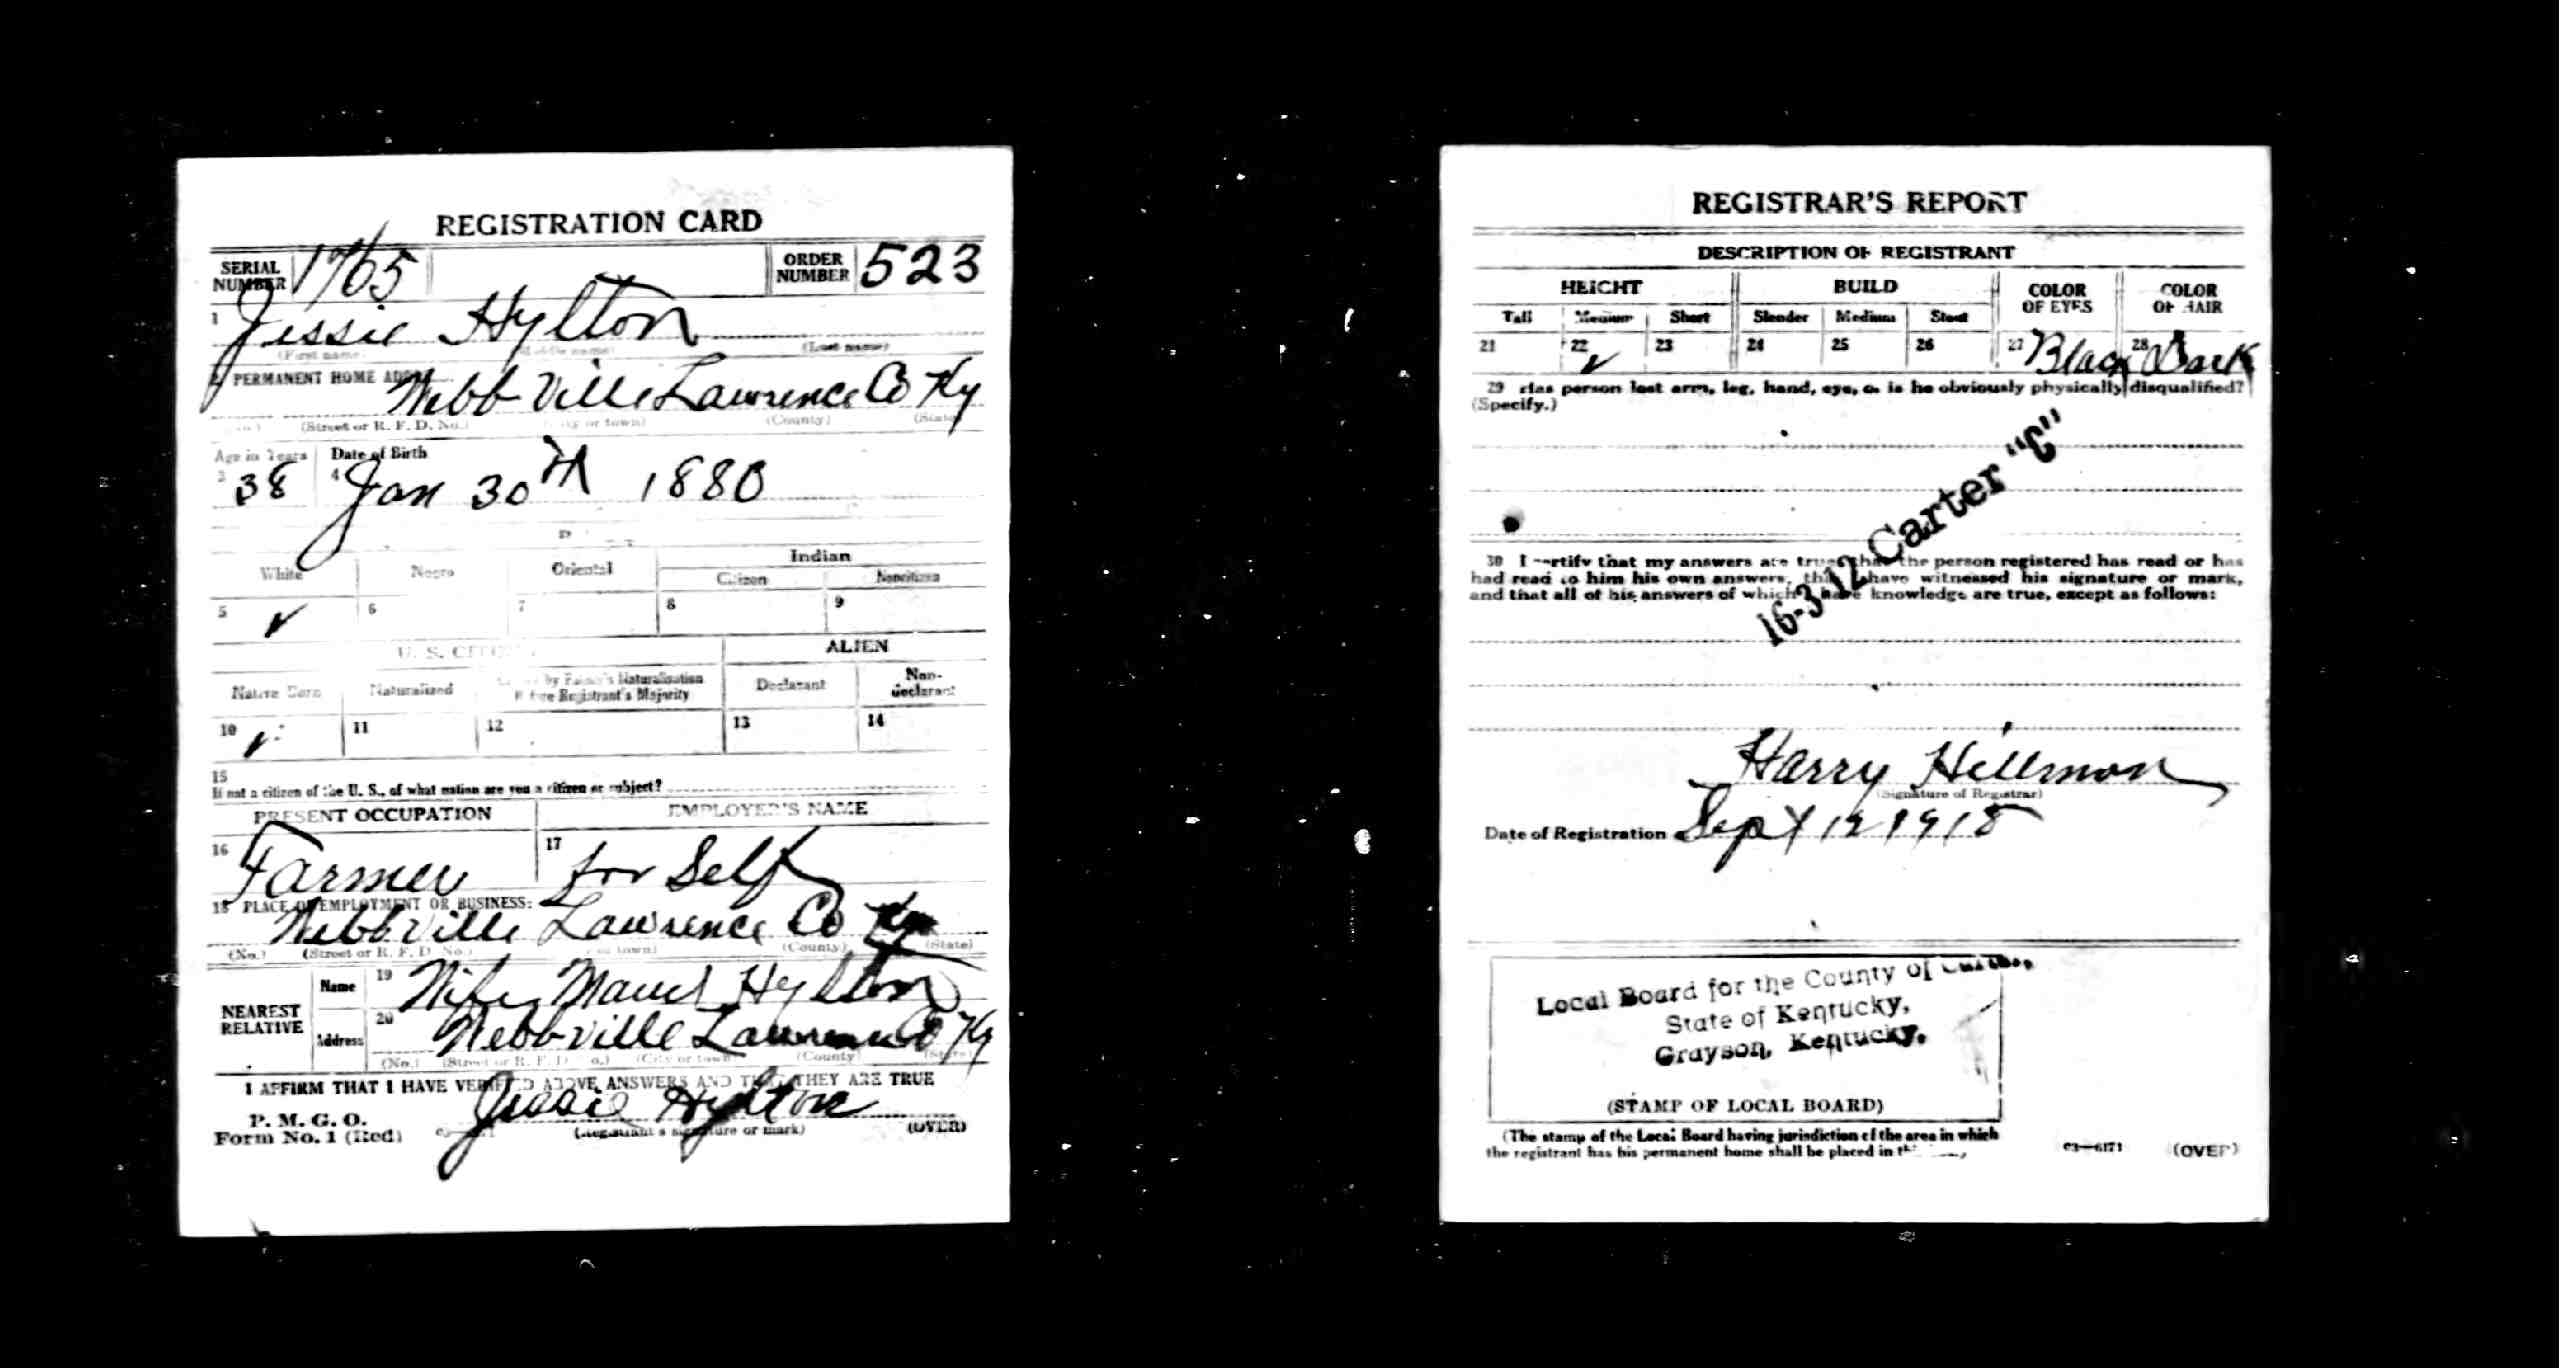 REGISTRATION CARD
SERIAL NUMBER 1765 ORDER NUMBER 523
1 Jessie Hylton
(First name) (Middle name) (Last name)
2 PERMANENT HOME ADDRESS:
Webbville Lawrence Co Ky
(No.) (Street or R. F. D. No.) (City or town) (County) (State)
Age in Years Date of Birth
3 38 4 Jan 30th 1880
Indian
White Negro Oriental Citizen Noncitizen
5 ✓ 6 7 8 9
U. S. CITIZEN ALIEN
Native Born Naturalized by Father's Naturalization Before Registrant's Majority Declarant Non-declarant
10 ✓ 11 12 13 14
15
If not a citizen of the U. S., of what nation are you a citizen or subject?
PRESENT OCCUPATION EMPLOYER'S NAME
16 Farmer 17 for Self
18 PLACE OF EMPLOYMENT OR BUSINESS:
Webbville Lawrence Co Ky
(No.) (Street or R. F. D. No.) (City or town) (County) (State)
NEAREST RELATIVE
Name 19 Wife Maud Hylton
Address 20 Webbville Lawrence Co Ky
(No.) (Street or R. F. D. No.) (City or town) (County) (State)
I AFFIRM THAT I HAVE VERIFIED ABOVE ANSWERS AND THAT THEY ARE TRUE
P. M. G. O.
Form No. 1 (Red) Jessie Hylton
(Registrant's signature or mark) (OVER)
REGISTRAR'S REPORT
DESCRIPTION OF REGISTRANT
HEIGHT BUILD COLOR OF EYES COLOR OF HAIR
Tall Medium Short Slender Medium Stout
21 22 ✓ 23 24 25 26 27 Black 28 Dark
29 Has person lost arm, leg, hand, eye, or is he obviously physically disqualified?
(Specify.)
16-3-12 Carter "C"
30 I certify that my answers are true, that the person registered has read or has
had read to him his own answers, that I have witnessed his signature or mark,
and that all of his answers of which I have knowledge are true, except as follows:
Harry Hillman
(Signature of Registrar)
Date of Registration Sept 12 1918
Local Board for the County of Carter,
State of Kentucky,
Grayson, Kentucky.
(STAMP OF LOCAL BOARD)
(The stamp of the Local Board having jurisdiction of the area in which
the registrant has his permanent home shall be placed in this
03—6171 (OVER)